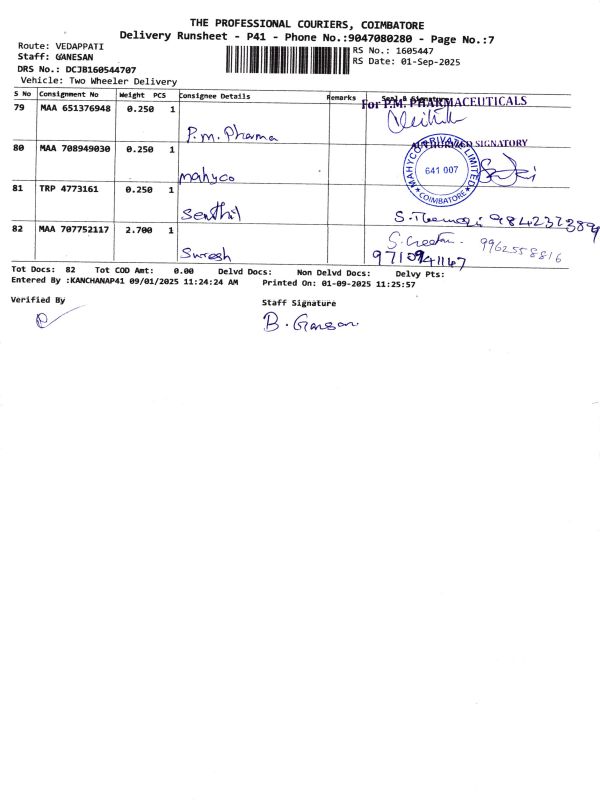 THE PROFESSIONAL COURIERS, COIMBATORE
Delivery Runsheet - P41 - Phone No.:9047080280 - Page No.:7
Route: VEDAPPATI
RS No.: 1605447
Staff: GANESAN
RS Date: 01-Sep-2025
DRS No.: DCJB160544707
Vehicle: Two Wheeler Delivery
S No Consignment No Weight PCS Consignee Details Remarks Seal & Signature
For P.M. PHARMACEUTICALS
79 MAA 651376948 0.250 1
P.M. Pharma
AUTHORIZED SIGNATORY
80 MAA 708949030 0.250 1
Mahyco
MAHYCO PRIVATE LIMITED
641 007
★ COIMBATORE ★
81 TRP 4773161 0.250 1
Senthil
9842372389
82 MAA 707752117 2.700 1
Suresh
9962558816
Tot Docs: 82 Tot COD Amt: 0.00 Delvd Docs: Non Delvd Docs: Delvy Pts:
Entered By :KANCHANAP41 09/01/2025 11:24:24 AM Printed On: 01-09-2025 11:25:57
Verified By
Staff Signature
B. Ganesan